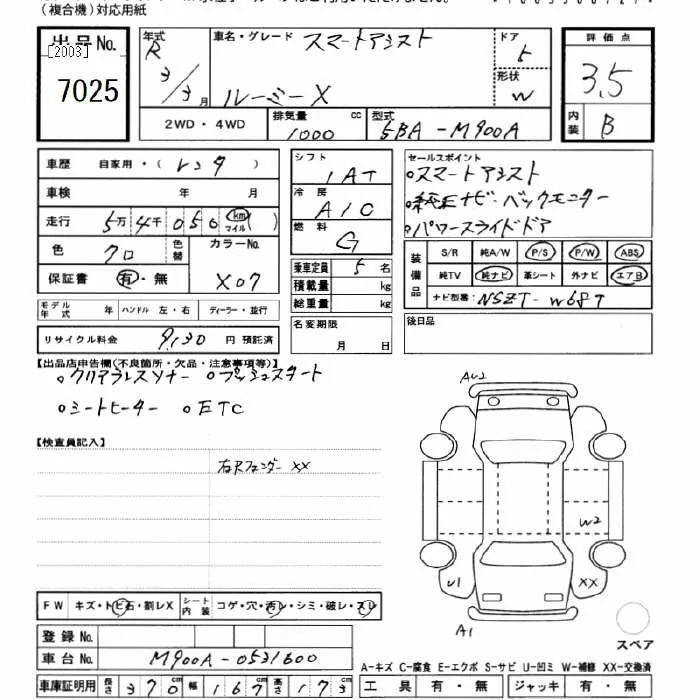 (複合機)対応用紙
出品No. [2003] 7025
年式 R 3/3 月
車名・グレード スマートアシスト
ルーミーX
ドア 5
形状 W
評価点 3.5
内装 B
2WD・4WD 排気量 1000 cc 型式 5BA-M900A
車歴 自家用・(レンタ)
車検 年 月
走行 5万4千050 km マイル( )
色 クロ 色替 カラーNo. X07
保証書 有・無
モデル年式 年 ハンドル 左・右 ディーラー・並行
リサイクル料金 9,130 円 預託済
シフト IAT
冷房 A/C
燃料 G
乗車定員 5 名
積載量 kg
総重量 kg
名変期限 月 日
セールスポイント
スマートアシスト
純正ナビ・バックモニター
パワースライドドア
装備品 S/R 純A/W P/S P/W ABS
純TV 純ナビ 革シート 外ナビ エアB
ナビ型番: NSZT-W68T
後日品
【出品店申告欄(不良箇所・欠品・注意事項等)】
クリアランスソナー プッシュスタート
シートヒーター ETC
【検査員記入】
右Rフェンダー XX
AU2
W2
U1 XX
A1
スペア
FW キズ・トビ石・割レX シート内装 コゲ・穴・汚レ・シミ・破レ・スレ
登録No.
車台No. M900A-0531600
車庫証明用 長さ 370cm 幅 167cm 高さ 173cm
A-キズ C-腐食 E-エクボ S-サビ U-凹ミ W-補修 XX-交換済
工具 有・無 ジャッキ 有・無